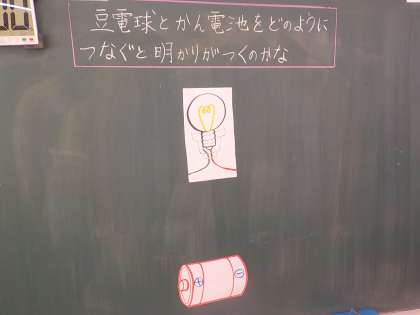 豆電球とかん電池をどのように
つなぐと明かりがつくのかな